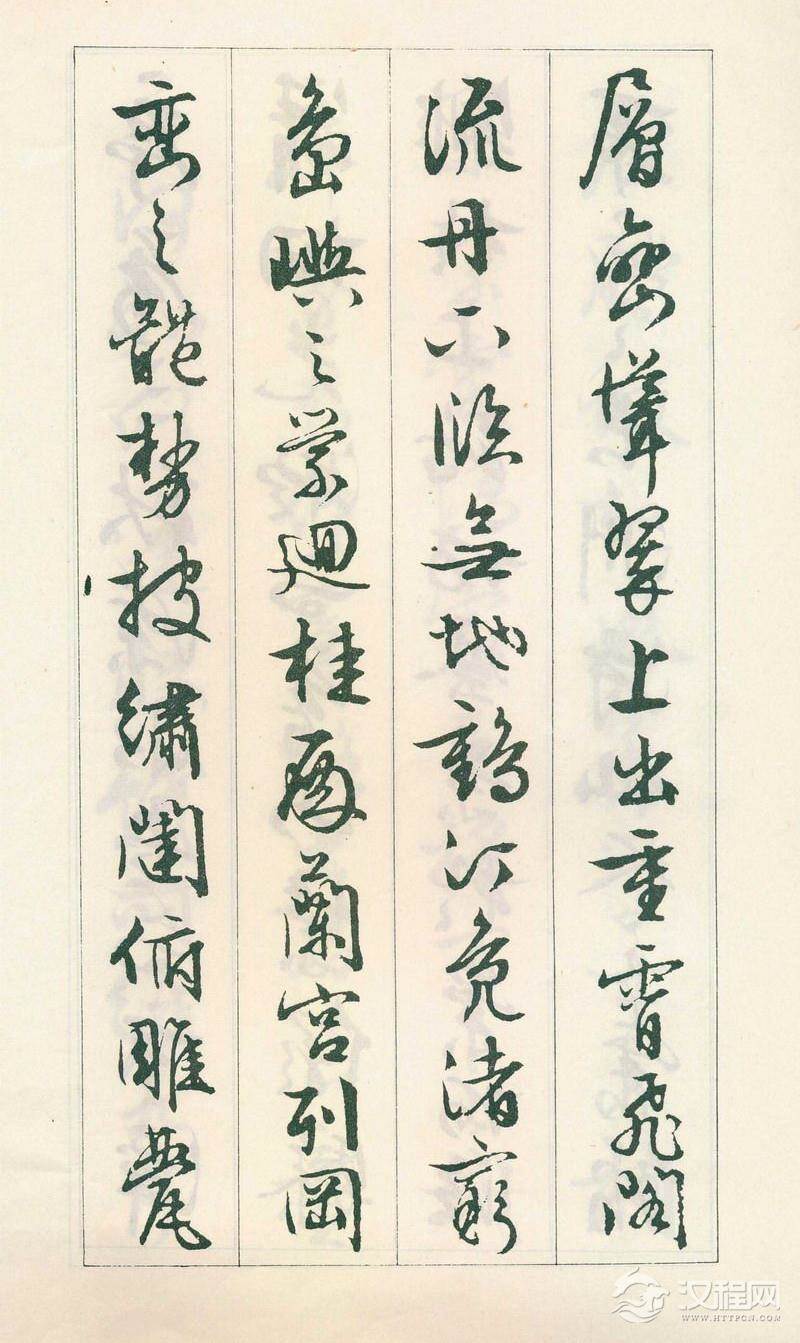 層巒聳翠上出重霄飛閣
流丹下臨無地鶴汀鳧渚窮
島嶼之縈迴桂殿蘭宮列岡
巒之體勢披繡闥俯雕甍
汉程网
WWW.HTTPCN.COM